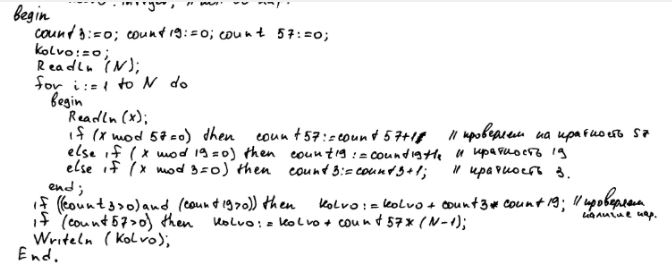 begin
count3:=0; count19:=0; count 57:=0;
Kolvo:=0;
Readln (N);
for i:=1 to N do
begin
Readln (x);
if (x mod 57=0) then count57:=count57+1 // проверяем на кратность 57
else if (x mod 19=0) then count19:=count19+1 // кратность 19
else if (x mod 3=0) then count3:=count3+1; // кратность 3.
end;
if ((count3>0) and (count19>0)) then kolvo:=kolvo+count3*count19; // проверяем наличие пар.
if (count57>0) then kolvo:=kolvo+count57*(N-1);
Writeln (Kolvo);
End.